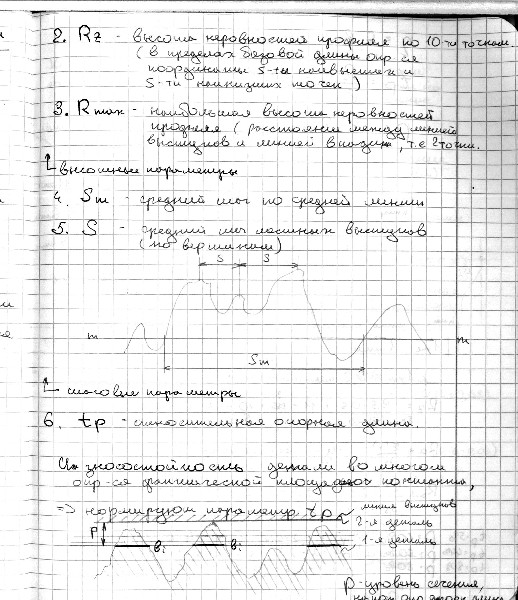 2. Rz - высота неровностей профиля по 10-ти точкам
(в пределах базовой длины опр-ся
координаты 5-ти наивысших и
5-ти наинизших точек)
3. Rmax - наибольшая высота неровностей
профиля (расстояние между линией
выступов и линией впадин, т.е 2 точки.
высотные параметры
4. Sm - средний шаг по средней линии
5. S - средний шаг местных выступов
(по вершинам)
S S
m m
Sm
шаговые параметры
6. tp - относительная опорная длина.
Износостойкость детали во многом
опр-ся фактической площадью контакта,
=> нормируют параметр tp
линия выступов
2-я деталь
P
bi bi
1-я деталь
p-уровень сечения,